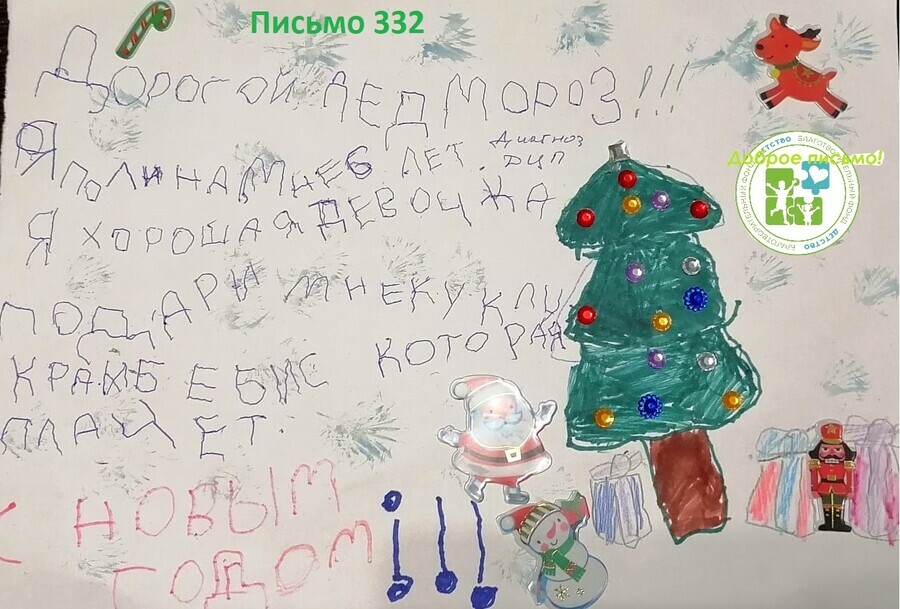 Письмо 332
ДОРОГОЙ ДЕД МОРОЗ!!!
Я ПОЛИНА МНЕ 6 ЛЕТ
Диагноз
ДЦП
Я ХОРОШАЯ ДЕВОЦЖА
ПОДАРИ МНЕ КУКЛУ
КРАЙБЕБИС КОТОРАЯ
ПЛАЧЕТ.
С НОВЫМ
ГОДОМ !!!
Доброе письмо!
БЛАГОТВОРИТЕЛЬНЫЙ ФОНД ДЕТСТВО БЛАГОТВОРИТЕЛЬНЫЙ ФОНД ДЕТСТВО